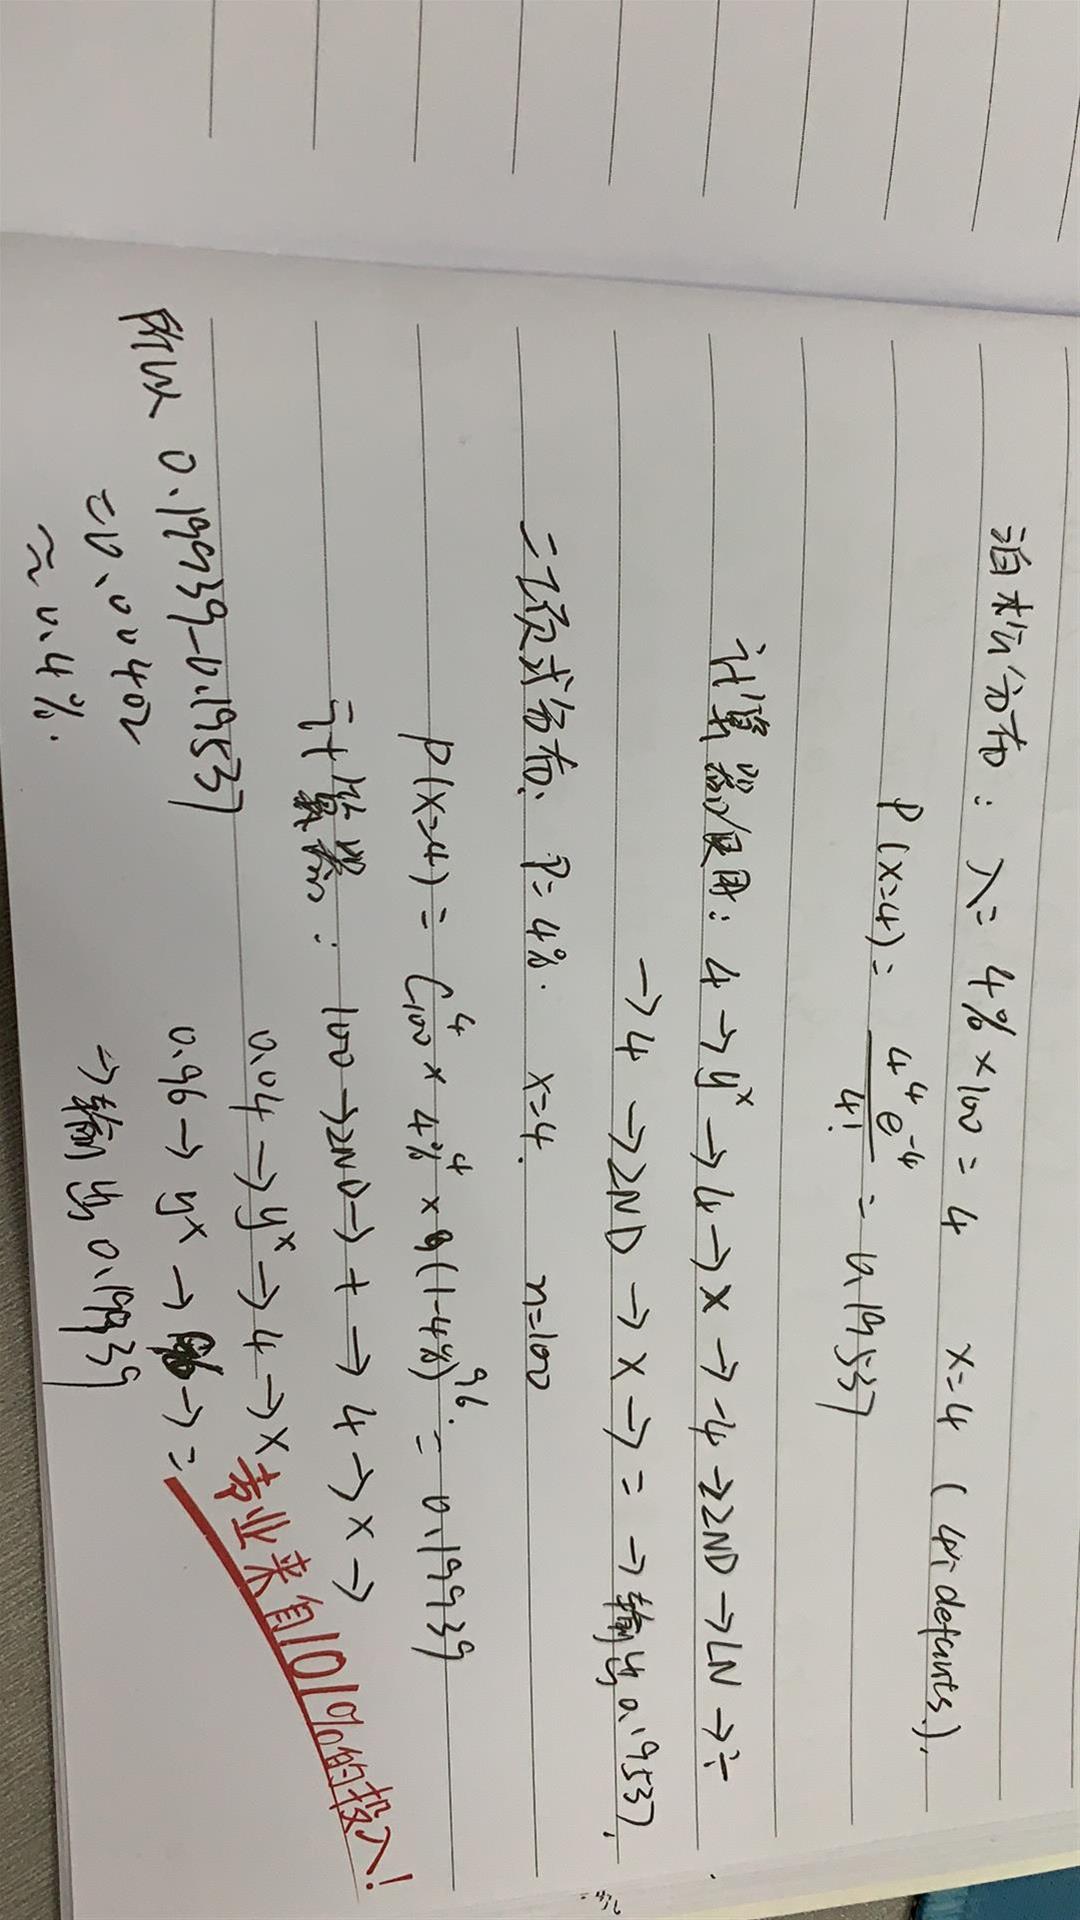 泊松分布： λ= 4% ×100 = 4 x=4 ( 4个 defaults ).
P(x=4) = 4⁴e⁻⁴ / 4! = 0.19537
计算器使用：4 → yˣ → 4 → × → -4 → 2ND → LN → ÷
→ 4 → 2ND → × → = → 输出 0.19537.
二项式分布. P=4%. x=4. n=100
P(x=4) = C₁₀₀⁴ × 4%⁴ × (1-4%)⁹⁶. = 0.19939
计算器： 100 → 2ND → + → 4 → × →
0.04 → yˣ → 4 → ×
0.96 → yˣ → 96 → =
→ 输出 0.19939
所以 0.19939-0.19537
=0.00402
≈0.4%.
专业来自101%的投入!